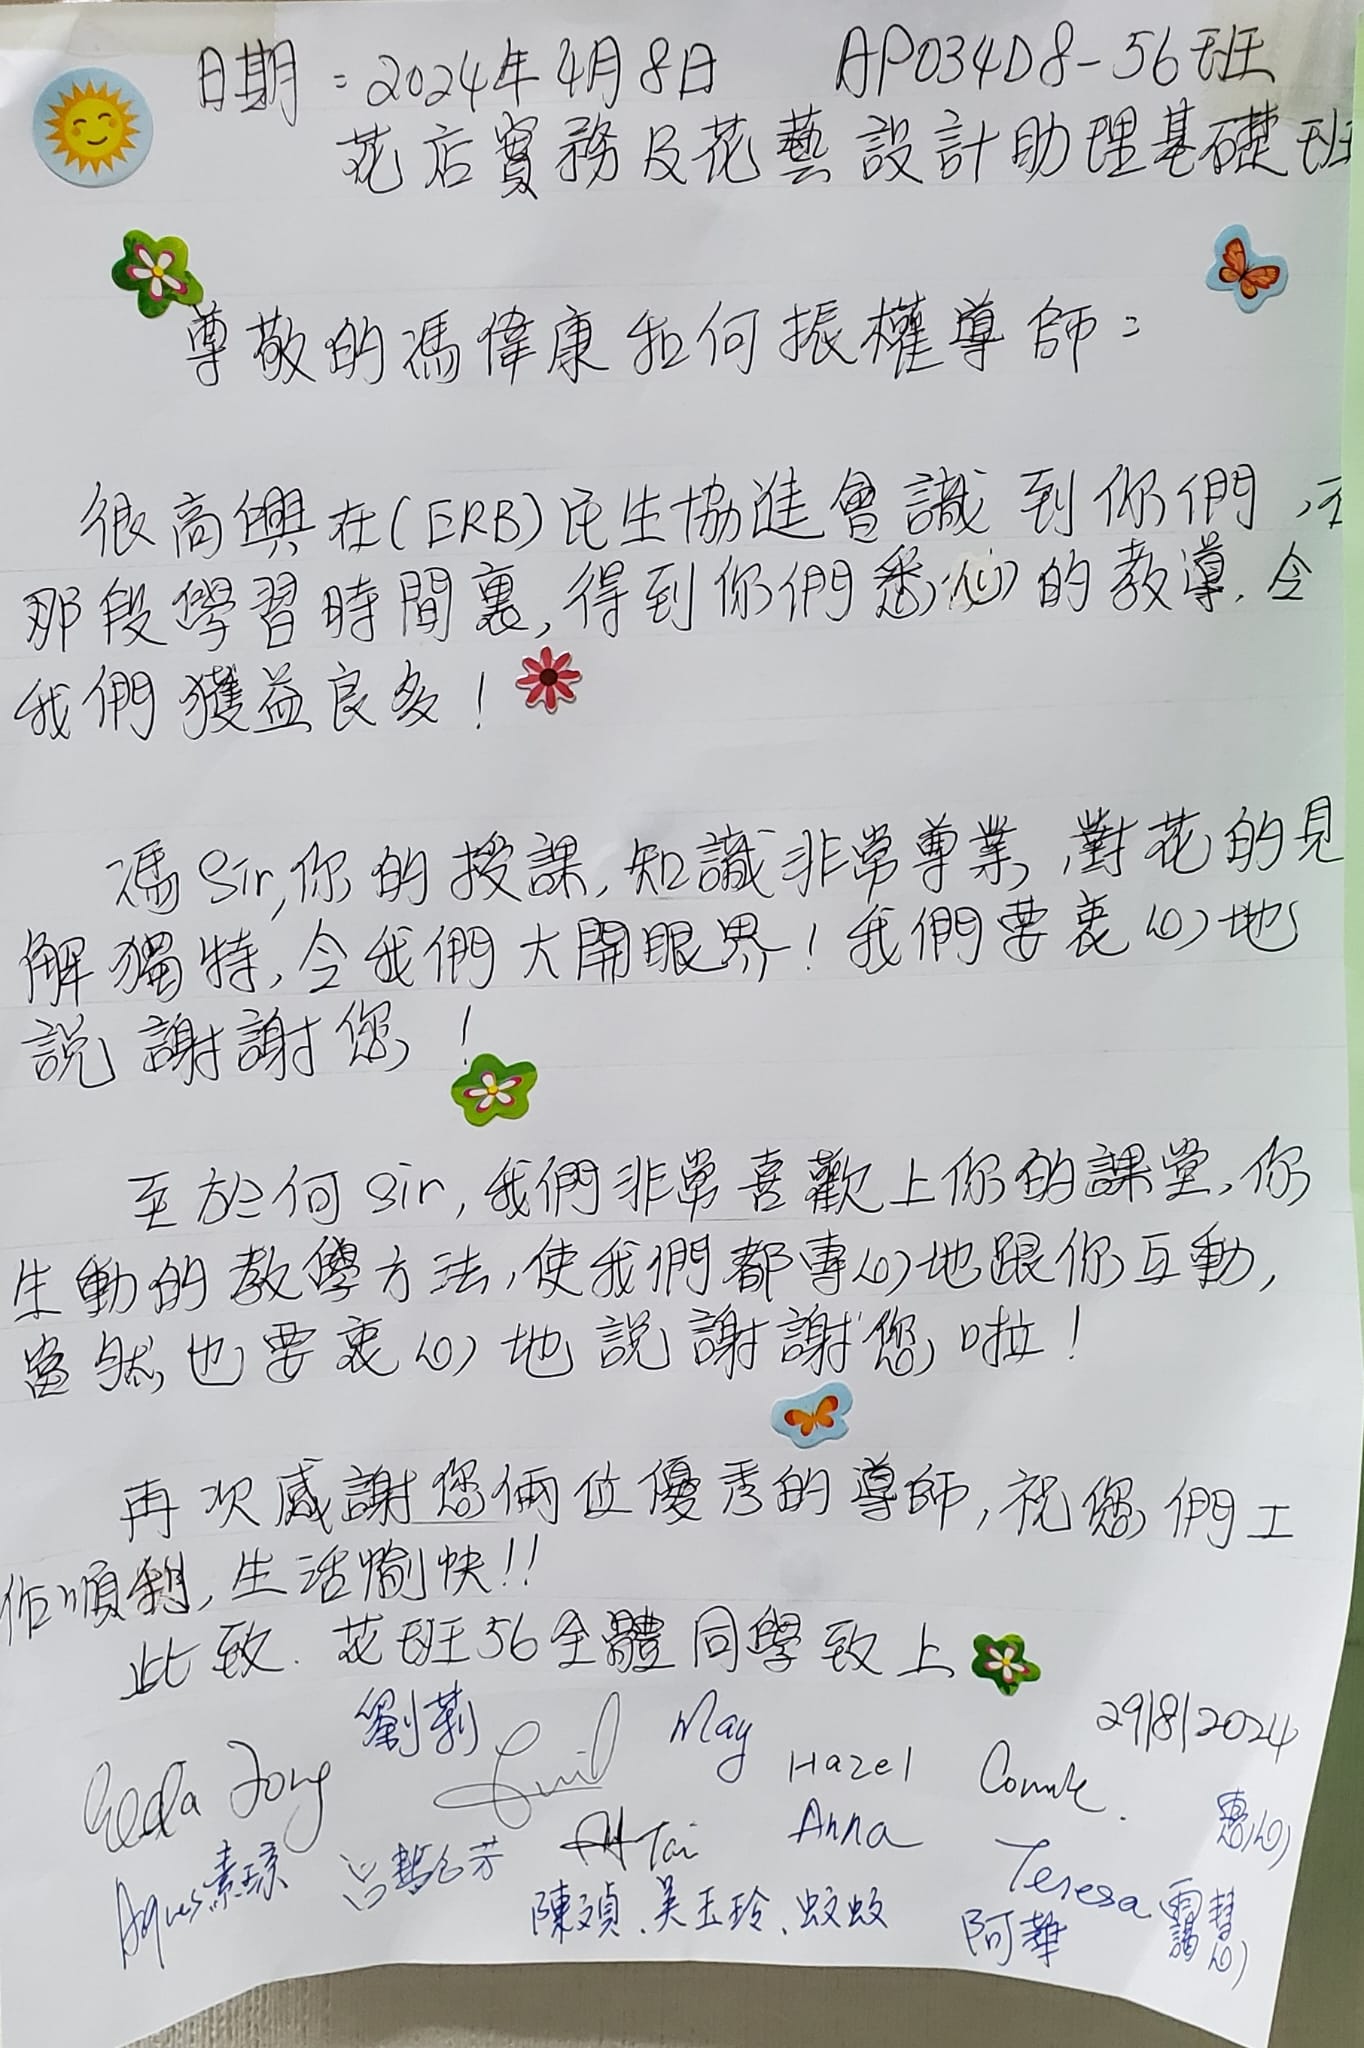 日期：2024年4月8日 AP034D8-56班
花店實務及花藝設計助理基礎班
尊敬的馮偉康和何振權導師：
很高興在(ERB)民生協進會識到你們，在
那段學習時間裏，得到你們悉心的教導，令
我們獲益良多！
馮Sir，你的授課，知識非常專業，對花的見
解獨特，令我們大開眼界！我們要衷心地
說謝謝您！
至於何Sir，我們非常喜歡上你的課堂，你
生動的教學方法，使我們都專心地跟你互動，
當然也要衷心地說謝謝您啦！
再次感謝您倆位優秀的導師，祝您們工
作順利，生活愉快!!
此致．花班56全體同學致上
29/8/2024
劉莉 May
Hazel Connie.
Tai Anna 惠心
Agnes素琼 Teresa
吳玉玲、蚊蚊 阿華